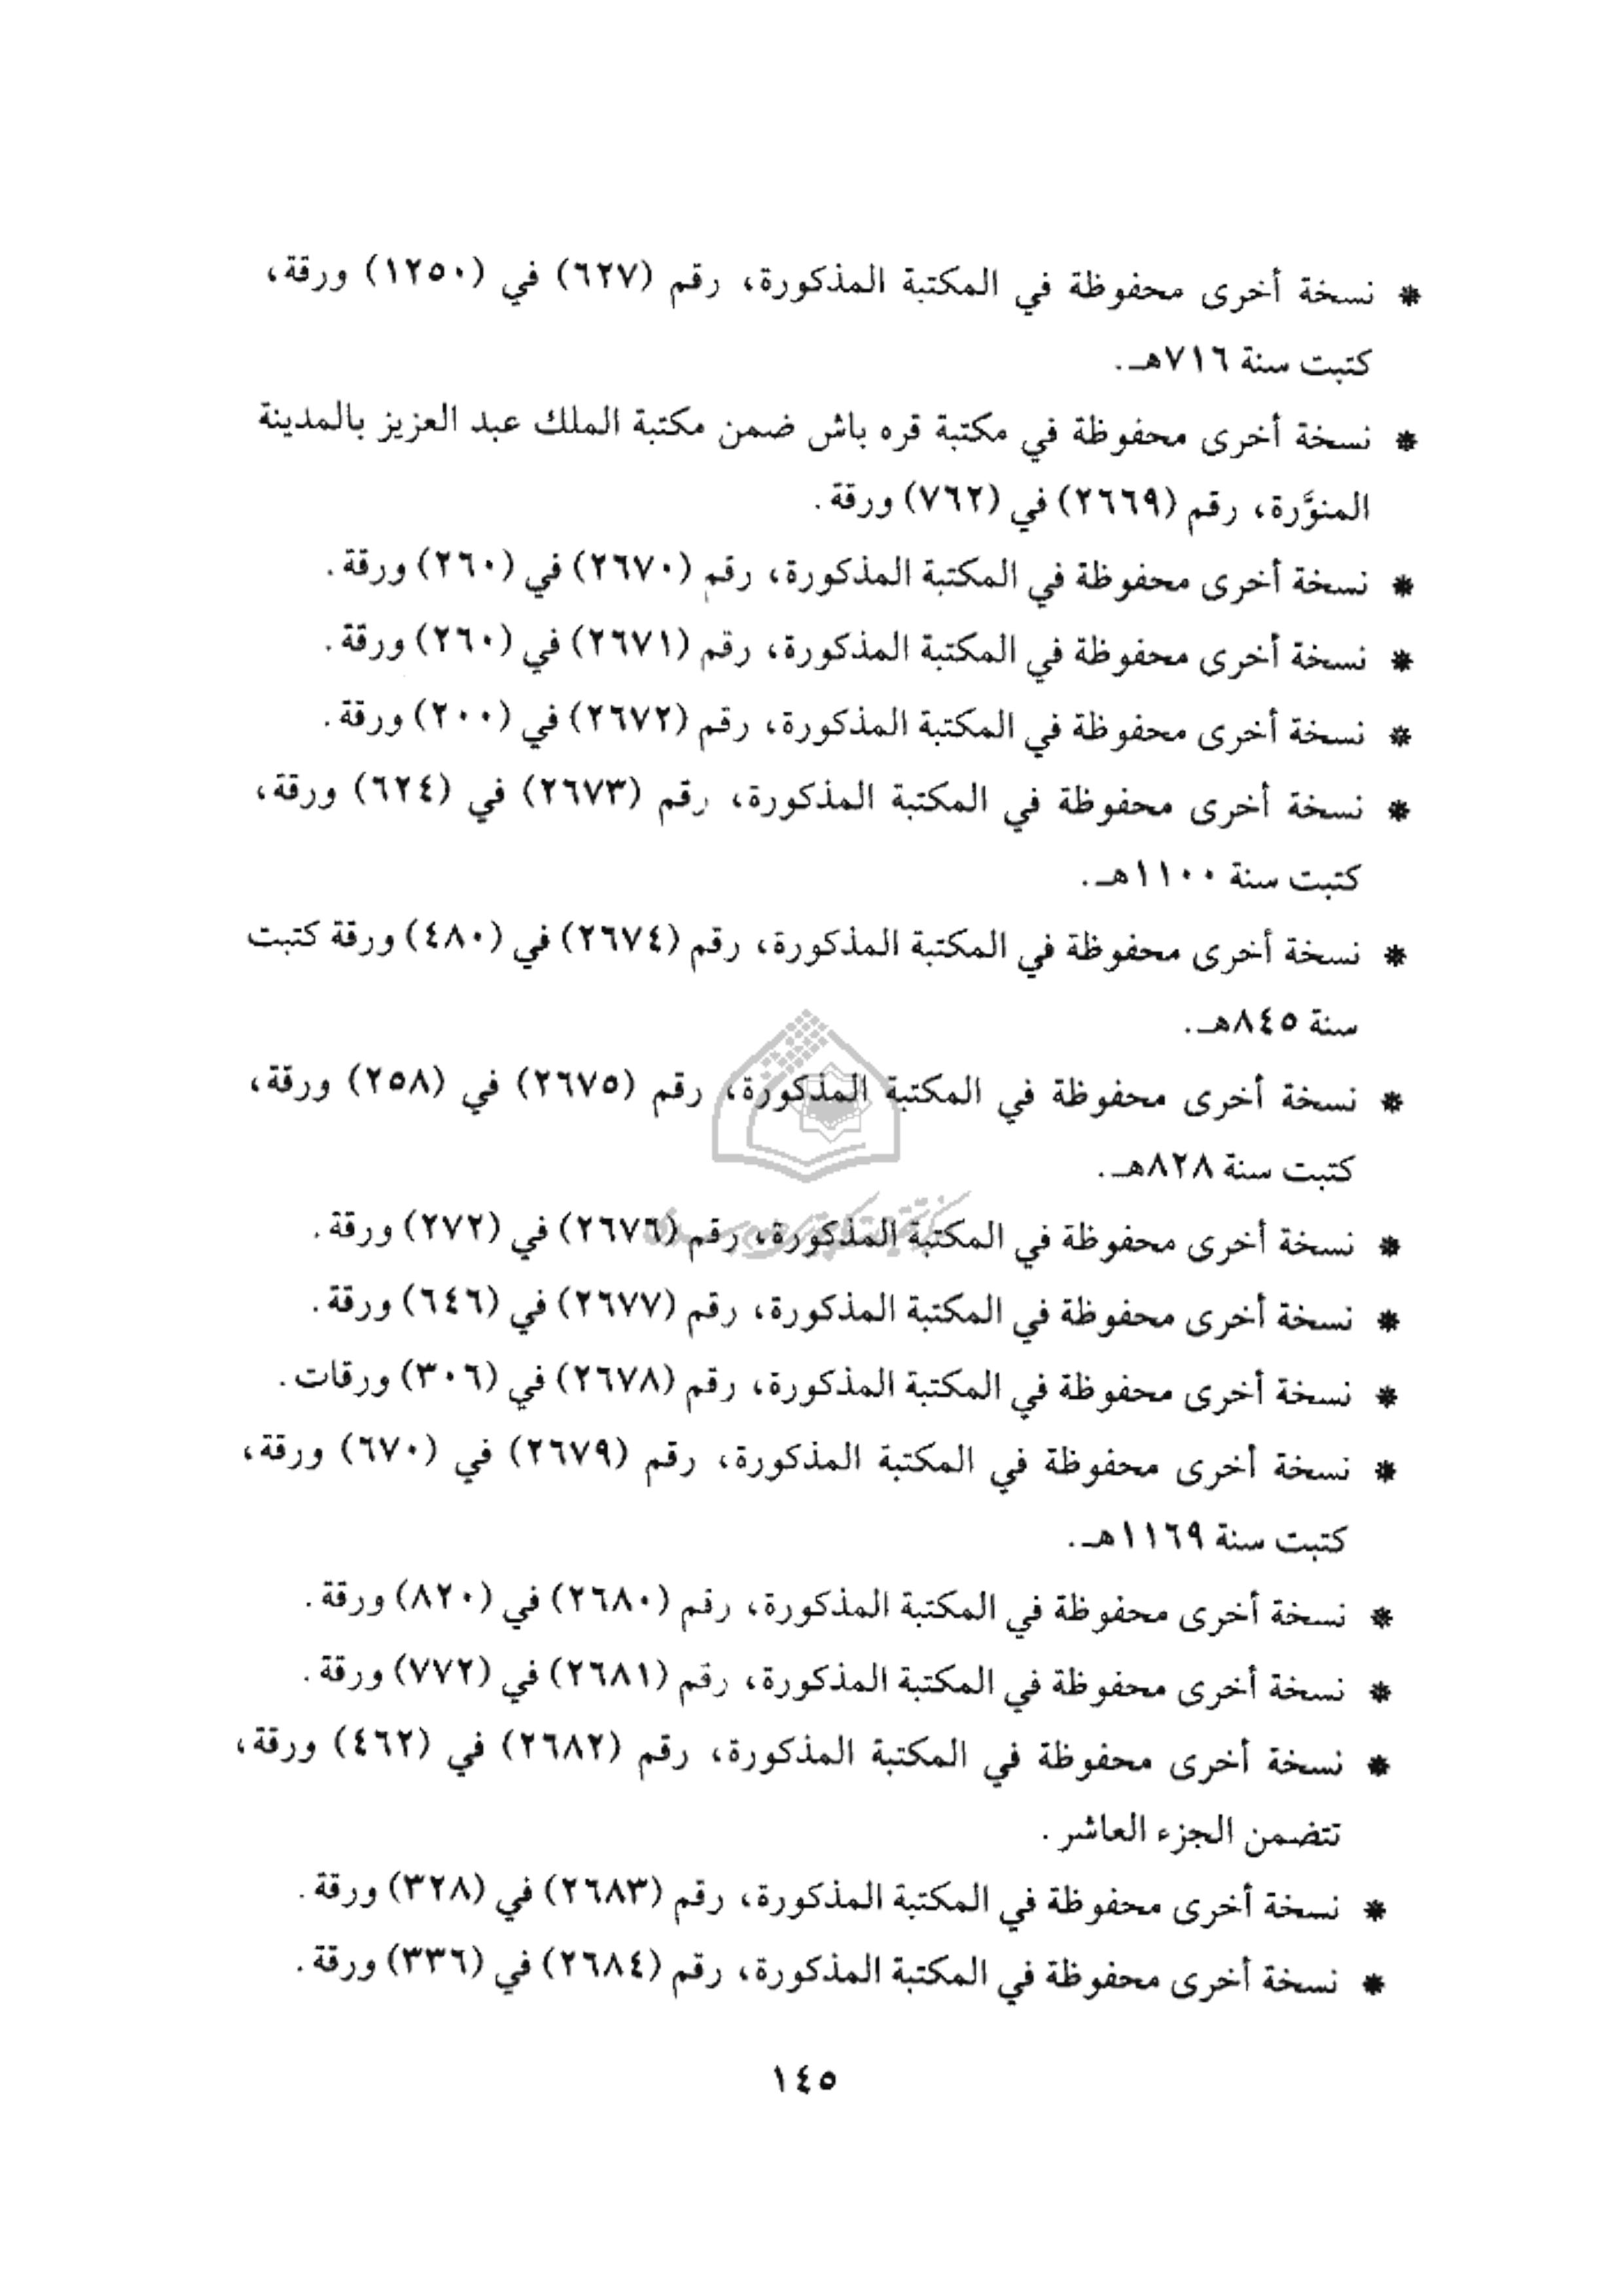 * نسخة أخرى محفوظة في المكتبة المذكورة، رقم (٦٢٧) في (١٢٥٠) ورقة،
كتبت سنة ٧١٦هـ.
* نسخة أخرى محفوظة في مكتبة قره باش ضمن مكتبة الملك عبد العزيز بالمدينة
المنوَّرة، رقم (٢٦٦٩) في (٧٦٢) ورقة.
* نسخة أخرى محفوظة في المكتبة المذكورة، رقم (٢٦٧٠) في (٢٦٠) ورقة.
* نسخة أخرى محفوظة في المكتبة المذكورة، رقم (٢٦٧١) في (٢٦٠) ورقة.
* نسخة أخرى محفوظة في المكتبة المذكورة، رقم (٢٦٧٢) في (٢٠٠) ورقة.
* نسخة أخرى محفوظة في المكتبة المذكورة، رقم (٢٦٧٣) في (٦٢٤) ورقة،
كتبت سنة ١١٠٠هـ.
* نسخة أخرى محفوظة في المكتبة المذكورة، رقم (٢٦٧٤) في (٤٨٠) ورقة كتبت
سنة ٨٤٥هـ.
* نسخة أخرى محفوظة في المكتبة المذكورة، رقم (٢٦٧٥) في (٢٥٨) ورقة،
كتبت سنة ٨٢٨هـ.
* نسخة أخرى محفوظة في المكتبة المذكورة، رقم (٢٦٧٦) في (٢٧٢) ورقة.
* نسخة أخرى محفوظة في المكتبة المذكورة، رقم (٢٦٧٧) في (٦٤٦) ورقة.
* نسخة أخرى محفوظة في المكتبة المذكورة، رقم (٢٦٧٨) في (٣٠٦) ورقات.
* نسخة أخرى محفوظة في المكتبة المذكورة، رقم (٢٦٧٩) في (٦٧٠) ورقة،
كتبت سنة ١١٦٩هـ.
* نسخة أخرى محفوظة في المكتبة المذكورة، رقم (٢٦٨٠) في (٨٢٠) ورقة.
* نسخة أخرى محفوظة في المكتبة المذكورة، رقم (٢٦٨١) في (٧٧٢) ورقة.
* نسخة أخرى محفوظة في المكتبة المذكورة، رقم (٢٦٨٢) في (٤٦٢) ورقة،
تتضمن الجزء العاشر.
* نسخة أخرى محفوظة في المكتبة المذكورة، رقم (٢٦٨٣) في (٣٢٨) ورقة.
* نسخة أخرى محفوظة في المكتبة المذكورة، رقم (٢٦٨٤) في (٣٣٦) ورقة.
١٤٥